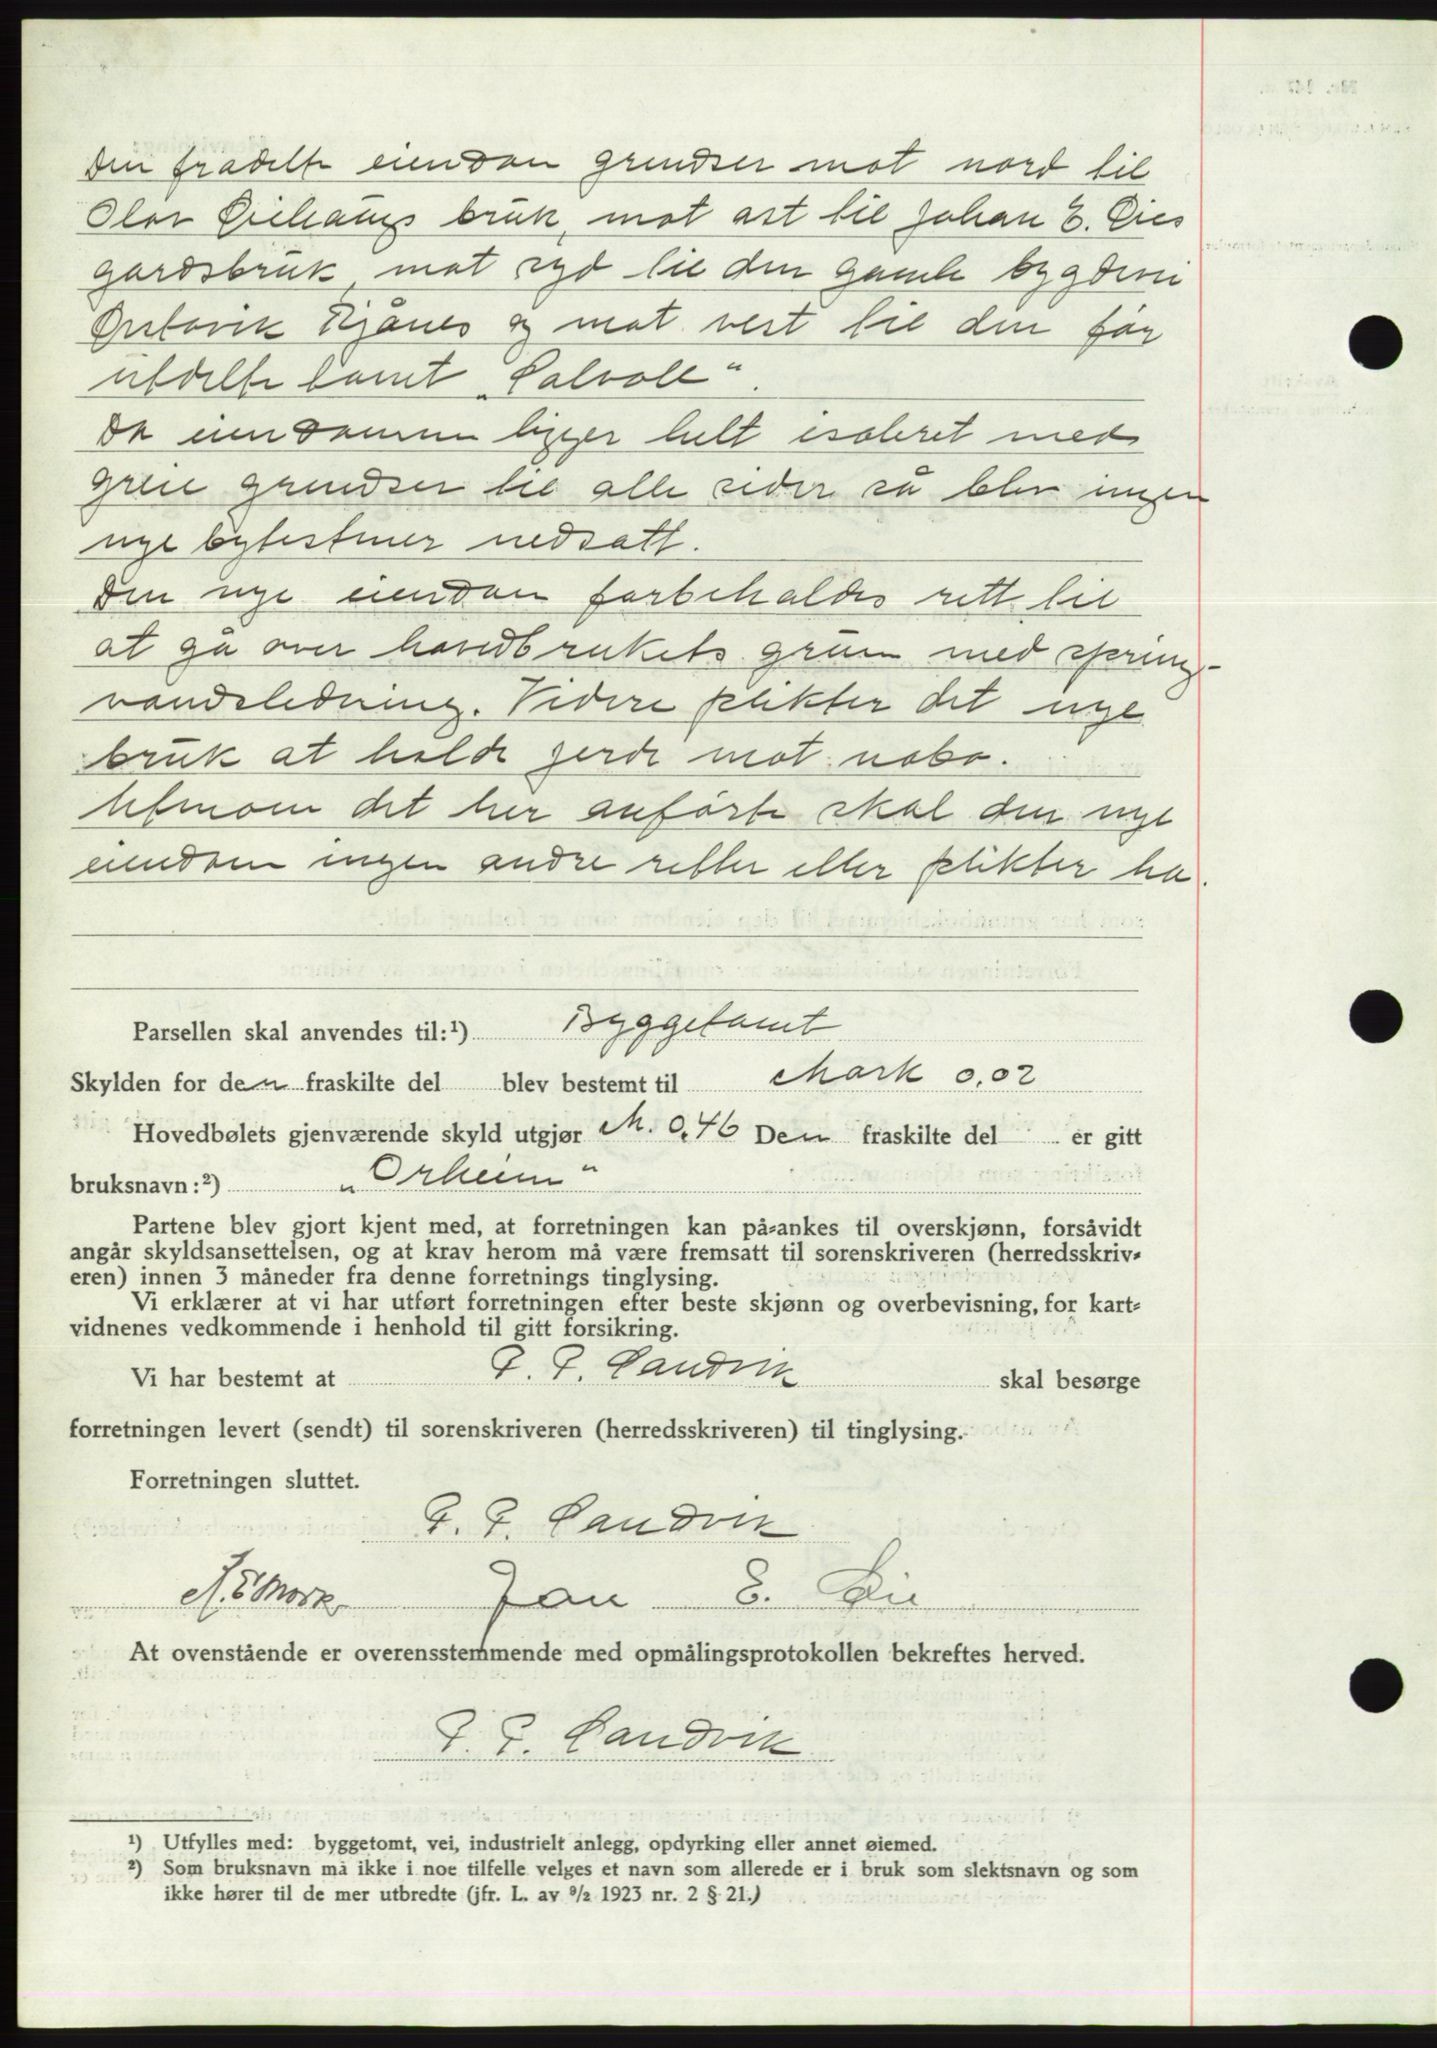 Den fradelte eiendom grendser mot nord til
Olav Øiehaugs bruk, mot øst til Johan E. Øies
gardsbruk, mot syd til den gamle bygdevei
Ørstavik Rjånes og mot vest til den før
utdelte tomt „Solvoll“.
Da eiendommen ligger helt isoleret med
greie grendser til alle sider så blev ingen
nye bytestener nedsatt.
Den nye eiendom forbeholdes rett til
at gå over hovedbrukets grunn med spring-
vandsledning. Videre plikter det nye
bruk at holde jerde mot nabo.
Utenom det her anførte skal den nye
eiendom ingen andre retter eller plikter ha.
Parsellen skal anvendes til:¹) Byggetomt
Skylden for den fraskilte del blev bestemt til Mark 0,02
Hovedbølets gjenværende skyld utgjør M. 0,46 Den fraskilte del er gitt
bruksnavn:²) „Orheim“
Partene blev gjort kjent med, at forretningen kan på-ankes til overskjønn, forsåvidt
angår skyldsansettelsen, og at krav herom må være fremsatt til sorenskriveren (herredsskriv-
eren) innen 3 måneder fra denne forretnings tinglysing.
Vi erklærer at vi har utført forretningen efter beste skjønn og overbevisning, for kart-
vidnenes vedkommende i henhold til gitt forsikring.
Vi har bestemt at P. P. Sandvik skal besørge
forretningen levert (sendt) til sorenskriveren (herredsskriveren) til tinglysing.
Forretningen sluttet.
P. P. Sandvik
A. E Mork Jon E. Øie
At ovenstående er overensstemmende med opmålingsprotokollen bekreftes herved.
P. P. Sandvik
¹) Utfylles med: byggetomt, vei, industrielt anlegg, opdyrking eller annet øiemed.
²) Som bruksnavn må ikke i noe tilfelle velges et navn som allerede er i bruk som slektsnavn og som
ikke hører til de mer utbredte (jfr. L. av ⁹/₂ 1923 nr. 2 § 21.)